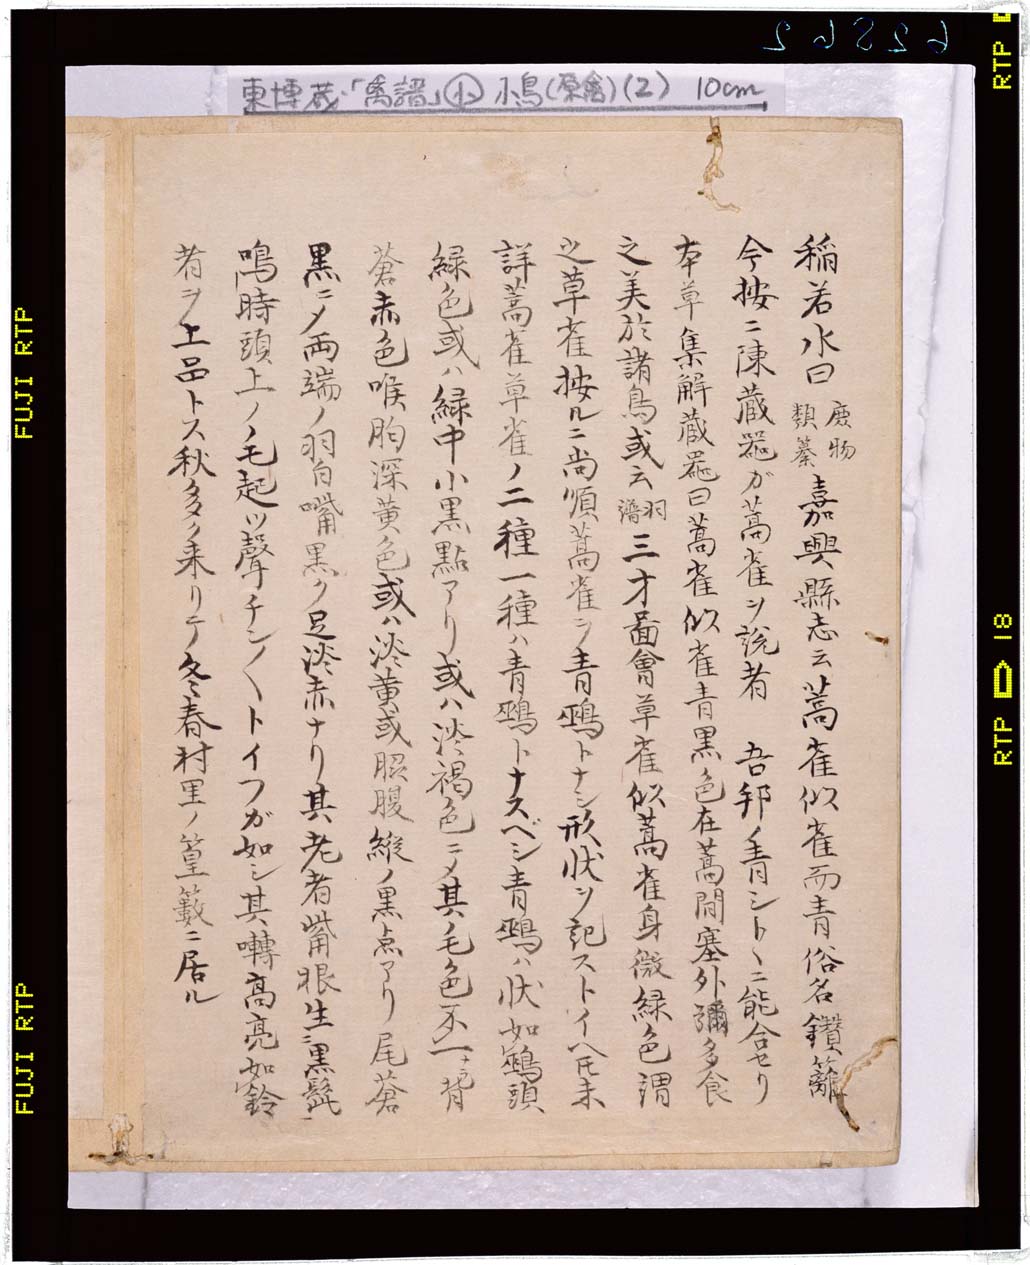 東博蔵・「禽譜」㊤ 小鳥(原禽)(2) 10cm
稲若水曰 庶物類纂 嘉興縣志云蒿雀似雀而青俗名鑽籬
今按ニ陳蔵器ガ蒿雀ヲ説者 吾邦ノ青シトヽニ能合セリ
本草集解蔵器曰蒿雀似雀青黒色在蒿間塞外彌多食
之美於諸鳥或云 羽譜 三才圖會草雀似蒿雀身微緑色謂
之草雀按ルニ尚順蒿雀ヲ青鵐トナシ形状ヲ記ストイヘ𪜈未
詳蒿雀草雀ノ二種一種ハ青鵐トナスベシ青鵐ハ状如鵐頭
緑色或ハ緑中小黒點アリ或ハ淡褐色ニ〆其毛色不一ナラ背
蒼赤色喉胸深黄色或ハ淡黄或 腹縦ノ黒点アリ尾蒼
黒ニ〆両端ノ羽白嘴黒ク足淡赤ナリ其老者嘴根生黒髭
鳴時頭上ノ毛起ツ聲チン〱トイフガ如シ其囀高亮如鈴
者ヲ上品トス秋多ク来リテ冬春村里ノ篁籔ニ居ル
FUJI RTP
FUJI RTP
RTP
RTP 18
62562